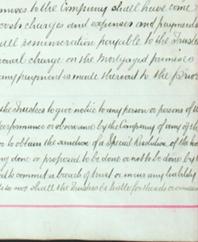 mises to the Company shall have come
costs charges and expenses and payments
all remuneration payable to the Trustees
ional charge on the Mortgaged premises
any payment is made thereout to the Prov
the Trustees to give notice to any person or persons of the
performance or observance by the Company of any of the
or to obtain the sanction of a Special Resolution of the hol
ing done or proposed to be done or not to be done by the
to commit a breach of trust or incur any liability
so nor shall the Trustees be liable for the acts or